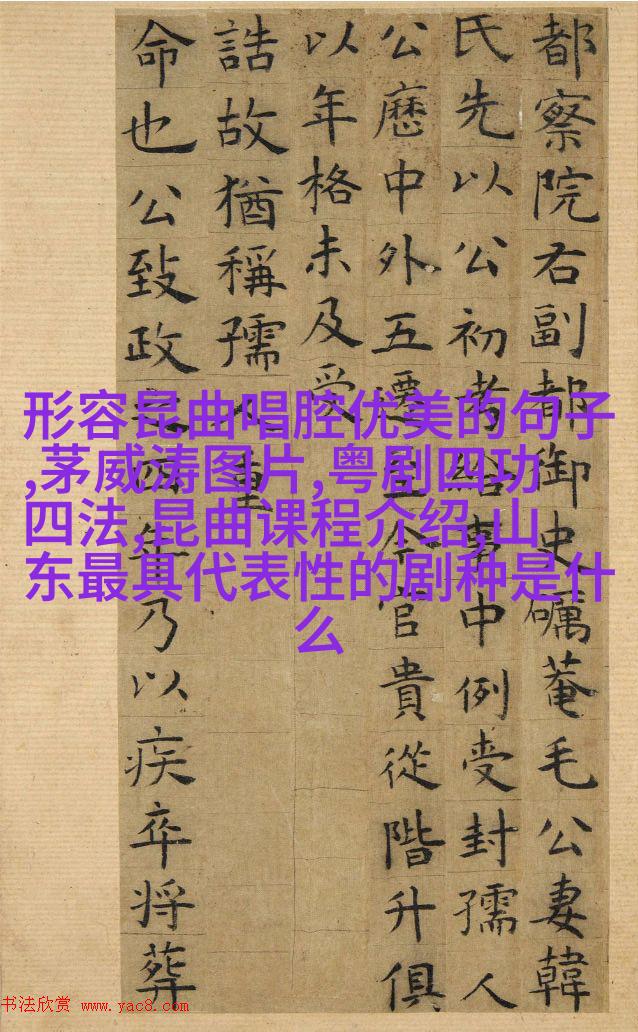 都察院右副都御史礪菴毛公妻韓
氏先以公初考給事中例受封孺人
公歷中外五遷至今官貴從階升俱
以年格未及受
誥故猶稱孺人重
命也公致政之四年乃以疾卒将葬
形容昆曲唱腔优美的句子
,茅威涛图片,粤剧四功
四法,昆曲课程介绍,山
东最具代表性的剧种是什
么
书法欣赏 www.yac8.com